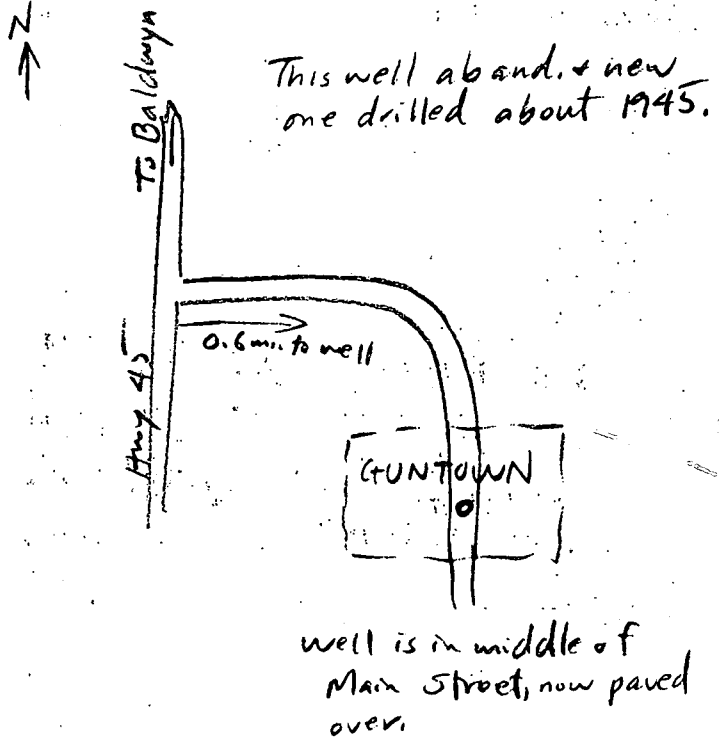 N
To Baldwyn
This well aband. & new
one drilled about 1945.
0.6 mi. to well
Hwy 45
GUNTOWN
well is in middle of
Main Street, now paved
over.